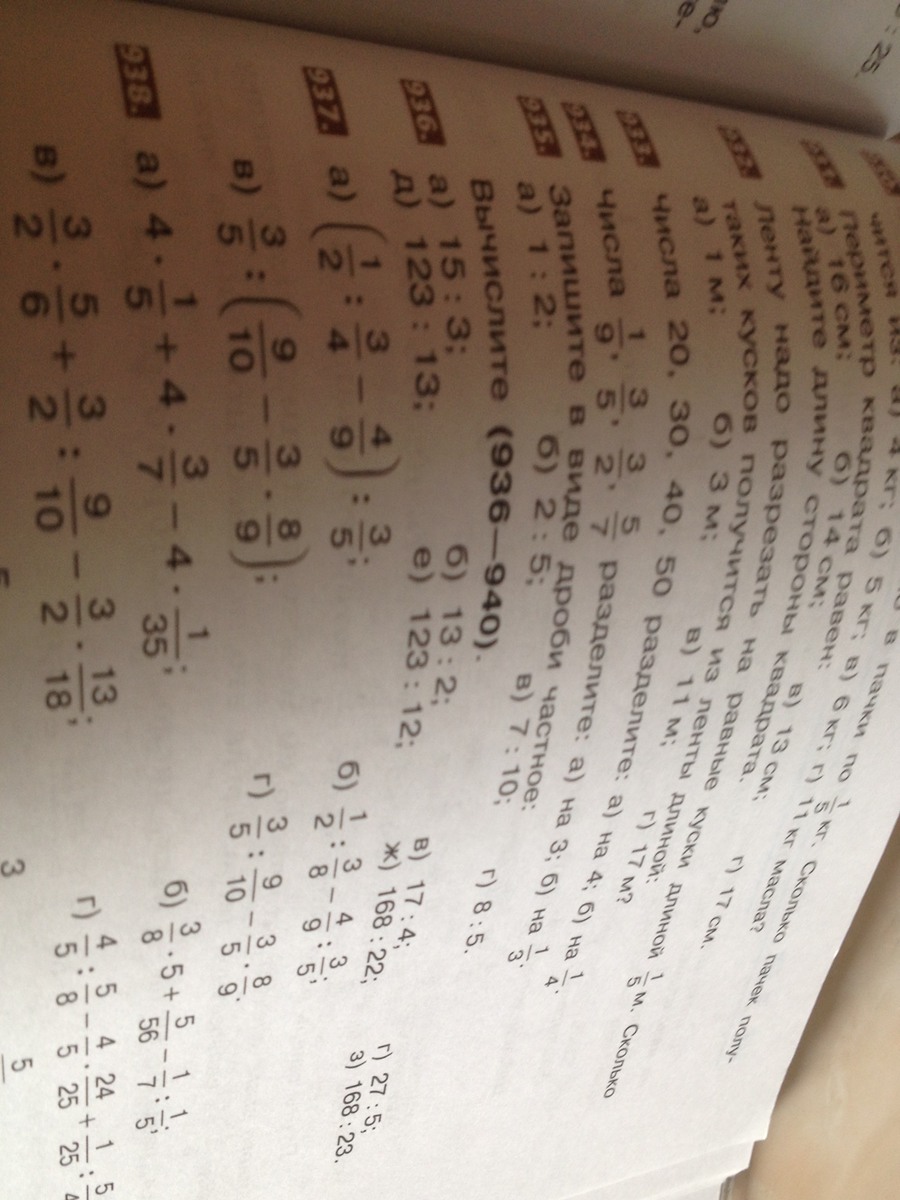 чится из: а) 4 кг; б) 5 кг; в) 6 кг; г) 11 кг масла?
в пачки по 1/5 кг. Сколько пачек полу-
931. Найдите длину стороны квадрата.
Периметр квадрата равен:
а) 16 см; б) 14 см; в) 13 см; г) 17 см.
932. Ленту надо разрезать на равные куски длиной 1/5 м. Сколько
таких кусков получится из ленты длиной:
а) 1 м; б) 3 м; в) 11 м; г) 17 м?
933. Числа 20, 30, 40, 50 разделите: а) на 4; б) на 1/4.
934. Числа 1/9, 3/5, 3/2, 5/7 разделите: а) на 3; б) на 1/3.
935. Запишите в виде дроби частное:
а) 1 : 2; б) 2 : 5; в) 7 : 10; г) 8 : 5.
Вычислите (936—940).
936. а) 15 : 3; б) 13 : 2; в) 17 : 4; г) 27 : 5;
д) 123 : 13; е) 123 : 12; ж) 168 : 22; з) 168 : 23.
937. а) (1/2 : 3/4 − 4/9) : 3/5; б) 1/2 : 3/8 − 4/9 : 3/5;
в) 3/5 : (9/10 − 3/5 · 8/9); г) 3/5 : 9/10 − 3/5 · 8/9.
938. а) 4 · 1/5 + 4 · 3/7 − 4 · 1/35; б) 3/8 · 5 + 5/56 − 1/7 : 1/5;
в) 3/2 · 5/6 + 3/2 : 9/10 − 3/2 · 13/18; г) 4/5 : 5/8 − 4/5 · 24/25 + 1/25 : 5/4